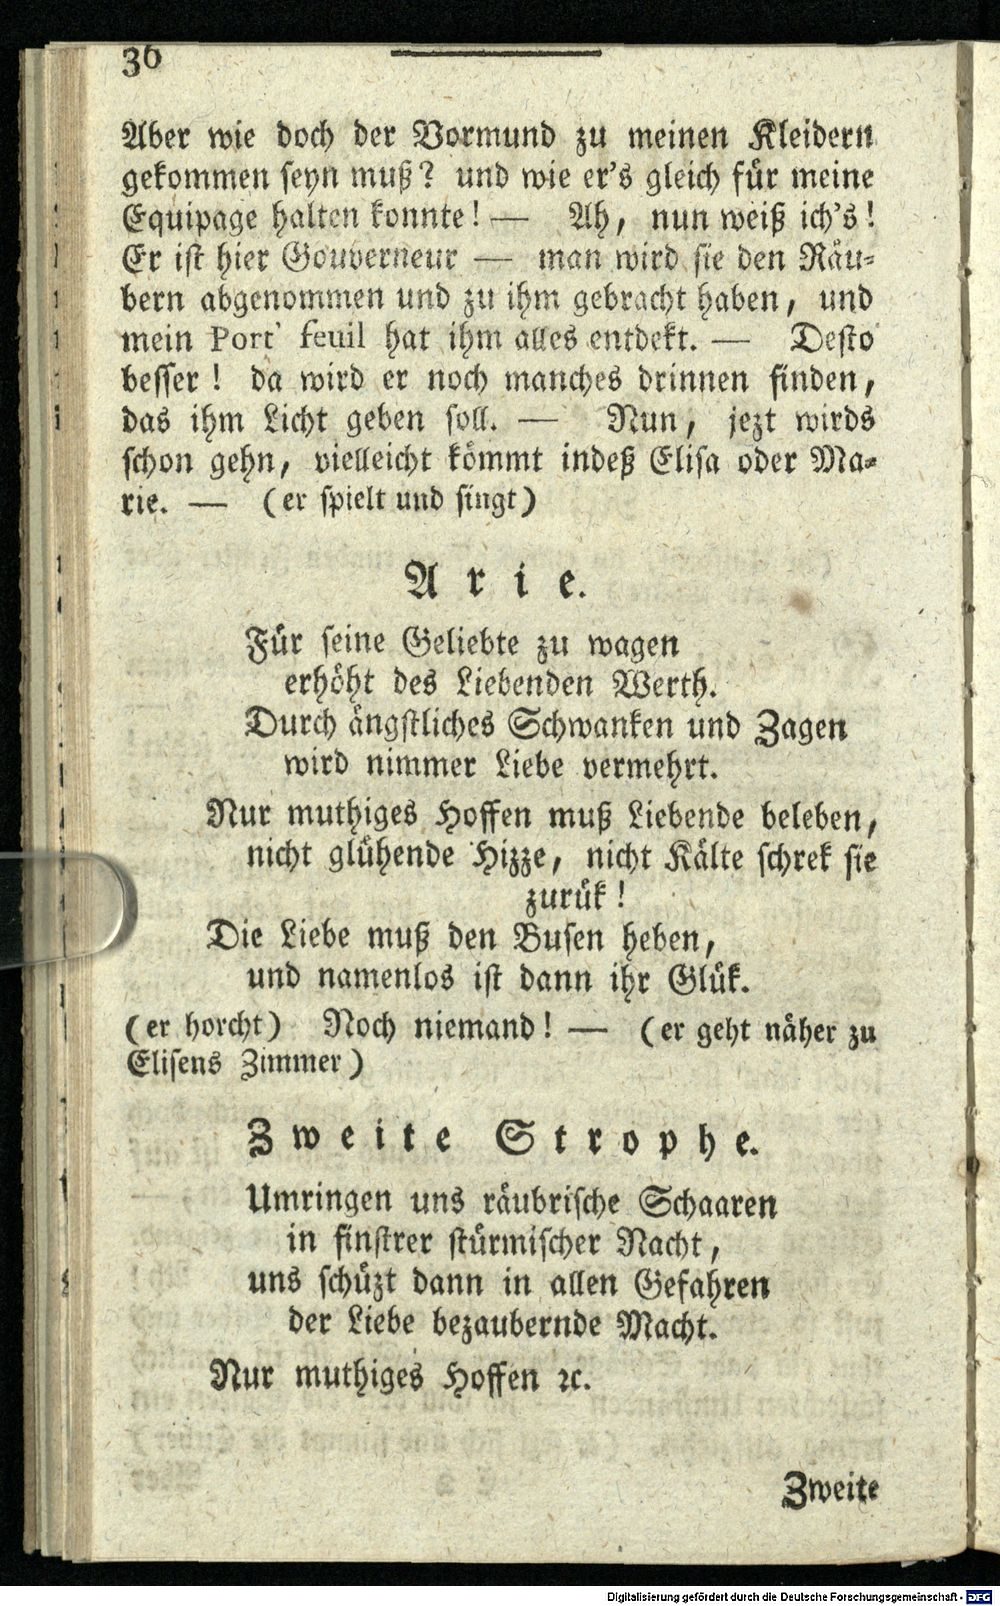 36
Aber wie doch der Vormund zu meinen Kleidern
gekommen seyn muß? und wie er's gleich für meine
Equipage halten konnte! — Ah, nun weiß ich's!
Er ist hier Gouverneur — man wird sie den Räu-
bern abgenommen und zu ihm gebracht haben, und
mein Port' feuil hat ihm alles entdekt. — Desto
besser! da wird er noch manches drinnen finden,
das ihm Licht geben soll. — Nun, jezt wirds
schon gehn, vielleicht kömmt indeß Elisa oder Ma-
rie. — (er spielt und singt)
Arie.
Für seine Geliebte zu wagen
erhöht des Liebenden Werth.
Durch ängstliches Schwanken und Zagen
wird nimmer Liebe vermehrt.
Nur muthiges Hoffen muß Liebende beleben,
nicht glühende Hizze, nicht Kälte schrek sie
zurük!
Die Liebe muß den Busen heben,
und namenlos ist dann ihr Glük.
(er horcht) Noch niemand! — (er geht näher zu
Elisens Zimmer)
Zweite Strophe.
Umringen uns räubrische Schaaren
in finstrer stürmischer Nacht,
uns schüzt dann in allen Gefahren
der Liebe bezaubernde Macht.
Nur muthiges Hoffen ꝛc.
Zweite
Digitalisierung gefördert durch die Deutsche Forschungsgemeinschaft - DFG